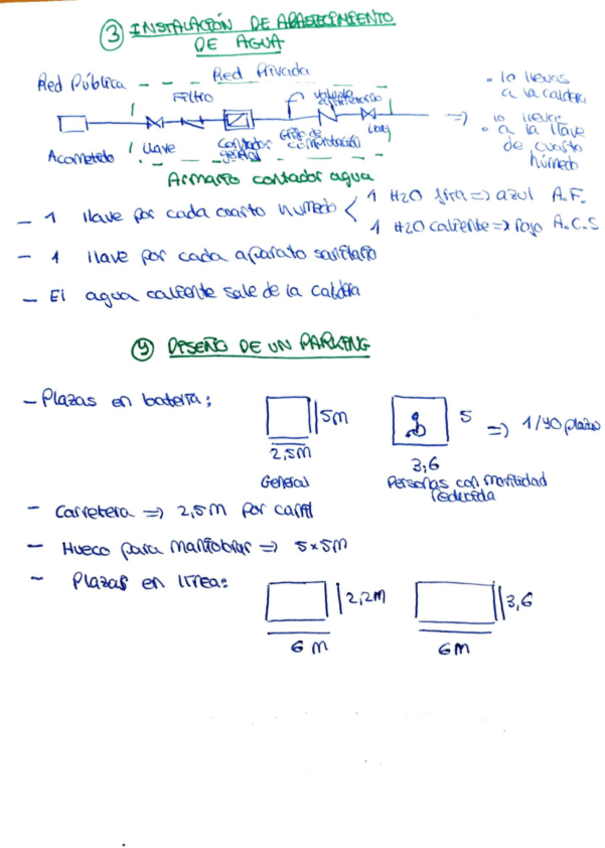 ③ INSTALACIÓN DE ABASTECIMIENTO
DE AGUA
Red Pública Red Privada
Filtro
- lo llevas
a la caldera
Acometida
llave
Contador
general
Grifo de
comprobación
=>
lo llevas
a la llave
de cuarto
húmedo
Armario contador agua
- 1 llave por cada cuarto humedo < 1 H2O fría => azul A.F.
1 H2O caliente => rojo A.C.S
- 1 llave por cada aparato sanitario
- El agua caliente sale de la caldera
DISEÑO DE UN PARKING
- Plazas en batería:
5m
2,5m
General
5
3,6
=> 1/40 plazas
Personas con movilidad
reducida
- Carretera => 2,5m por carril
- Hueco para maniobrar => 5x5m
- Plazas en línea:
2,2m
6 m
3,6
6m